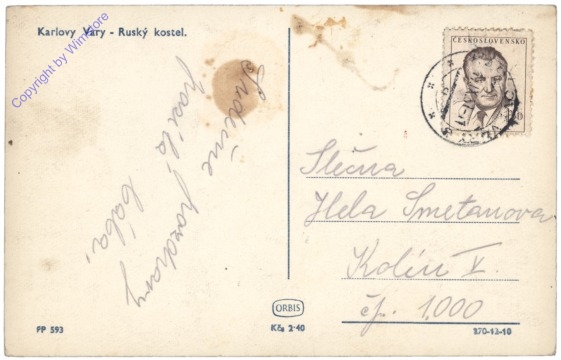 Karlovy Vary - Ruský kostel.
Copyright by WinStore
Srdečné
pozdravy
posílá
bába.
ČESKOSLOVENSKO
Slečna
Hela Smetanova
Kolín V.
čp. 1.000
ORBIS
Kčs 2·40
FP 593
270-12-10